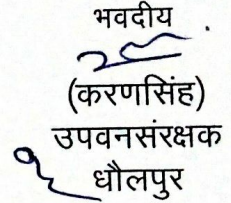 भवदीय
(करणसिंह)
उपवनसंरक्षक
धौलपुर